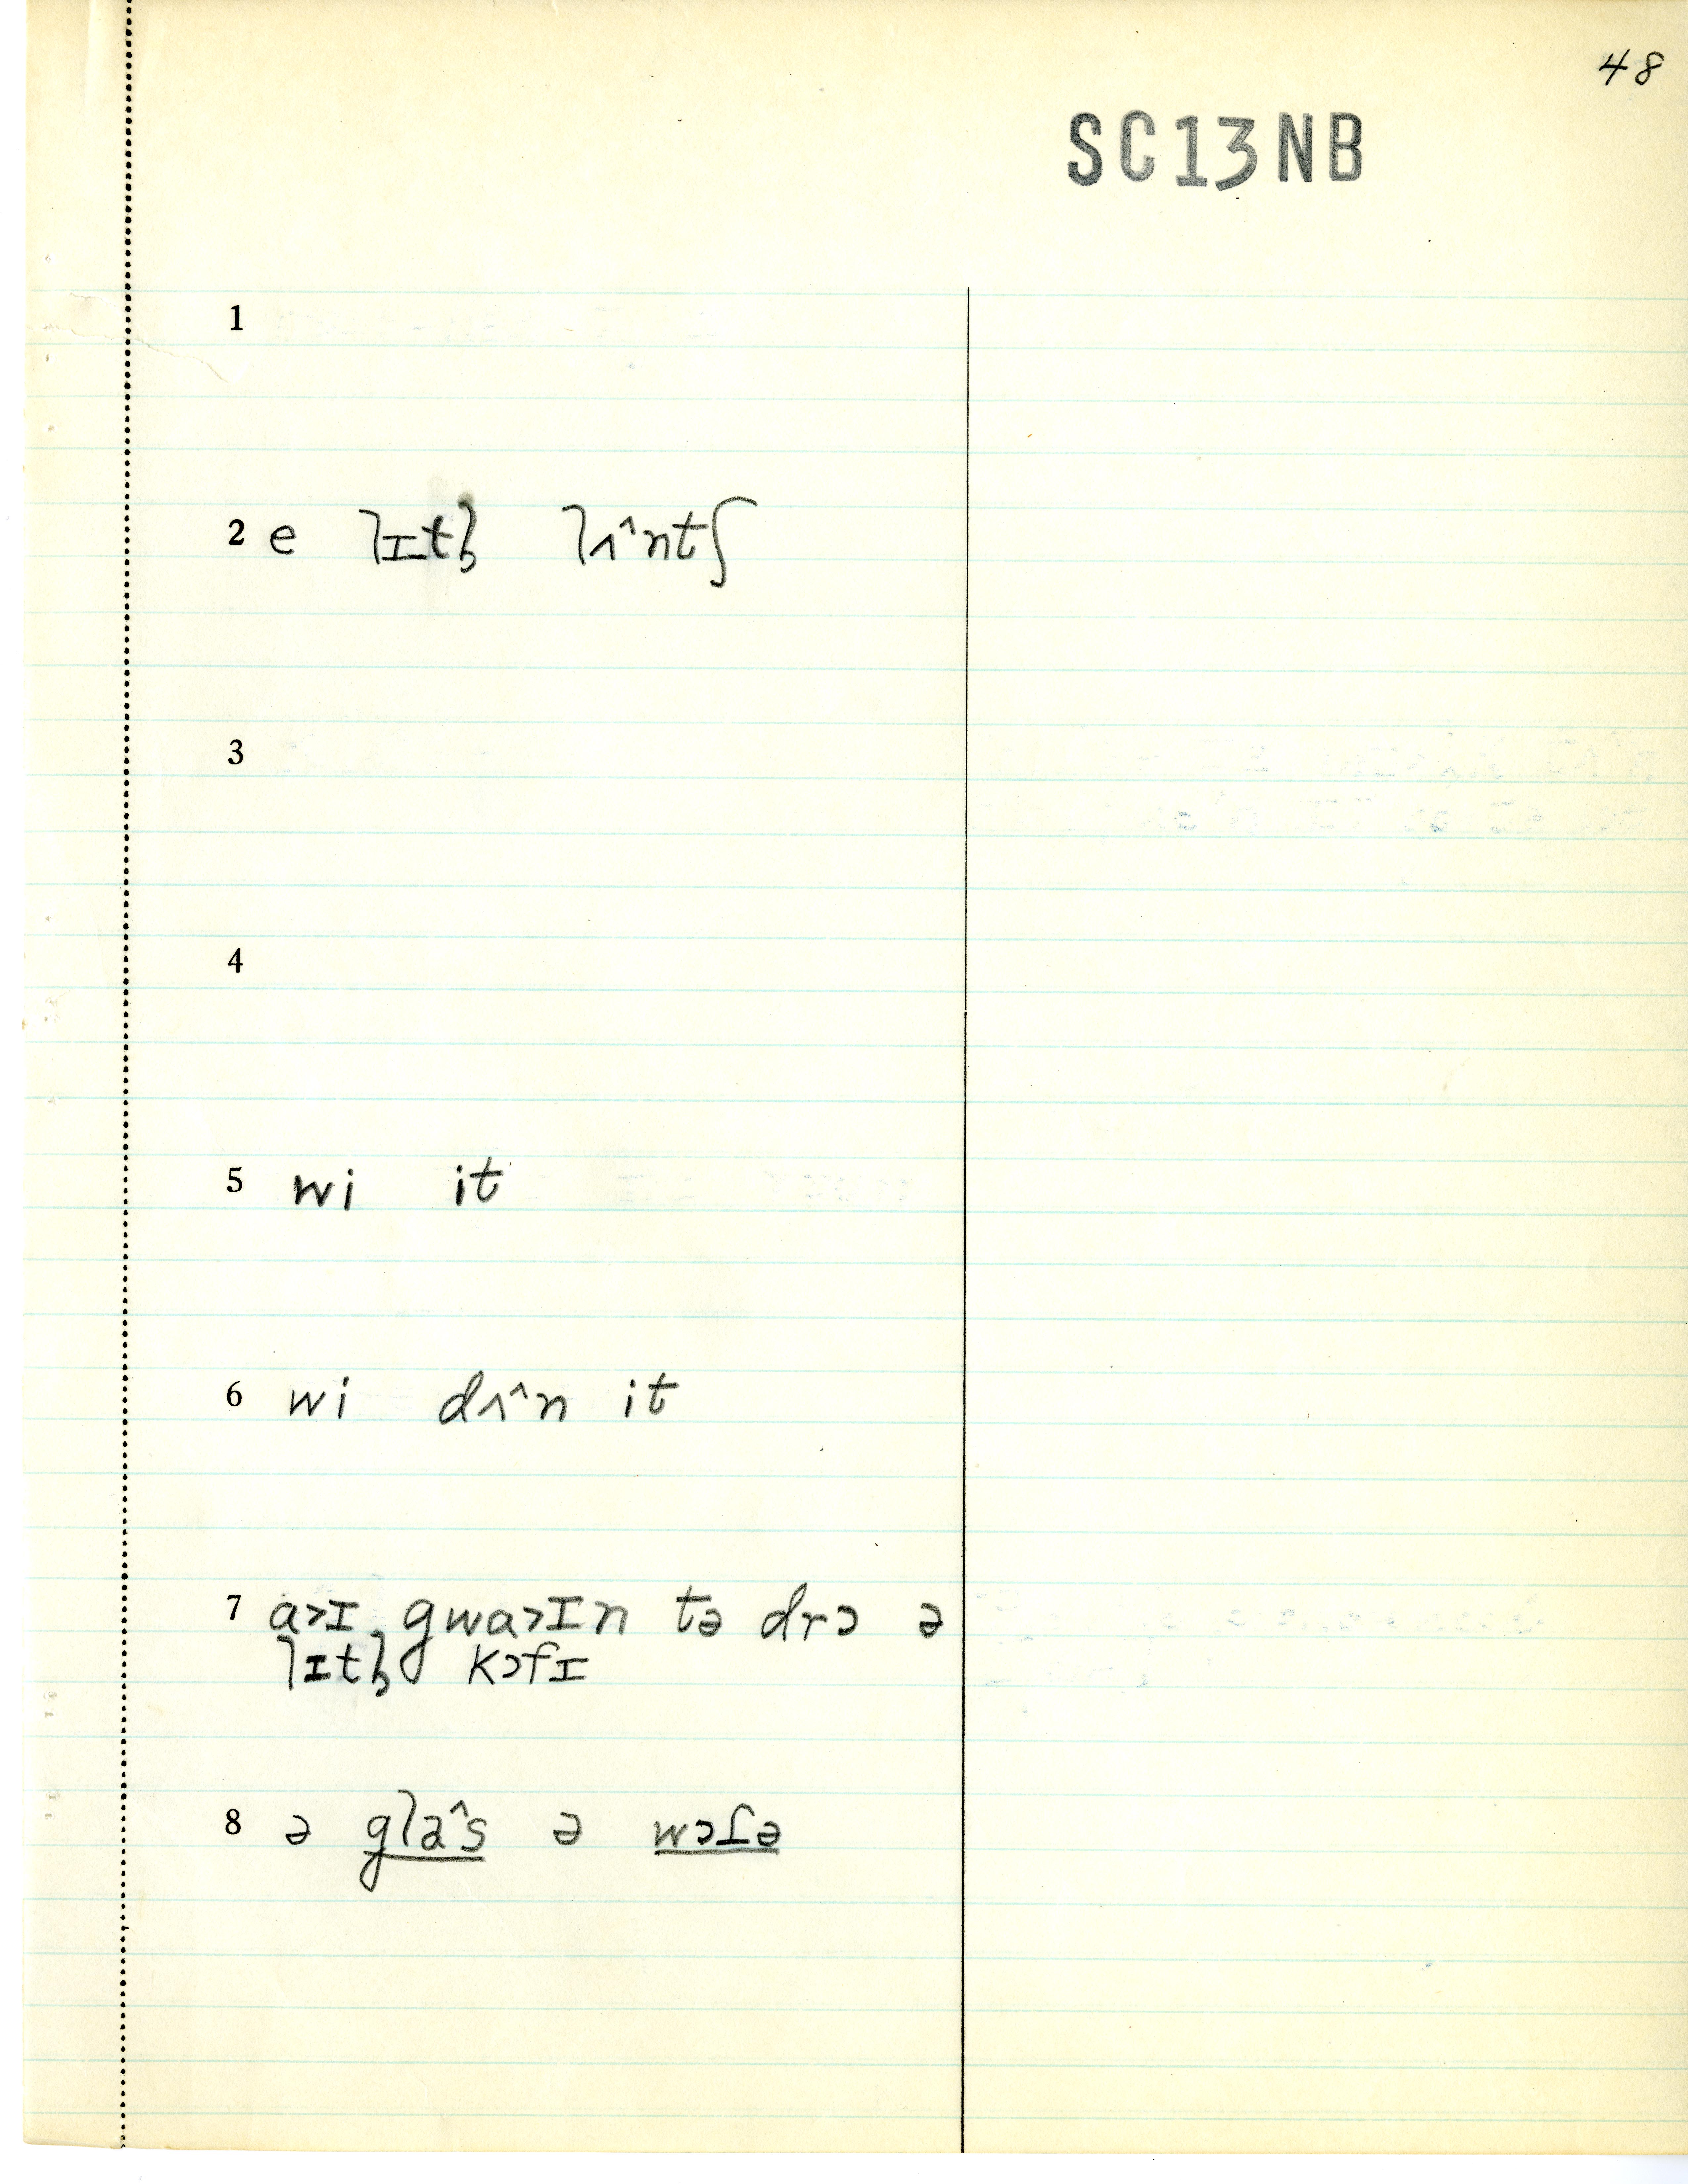 48
SC13NB
1
2 e lɪtl̩ lʌ^ntʃ
3
4
5 wi it
6 wi dʌ^n it
7 a>ɪ gwa>ɪn tə drɔ ə
lɪtl̩ kɔfɪ
8 ə gla^s ə wɔɾə